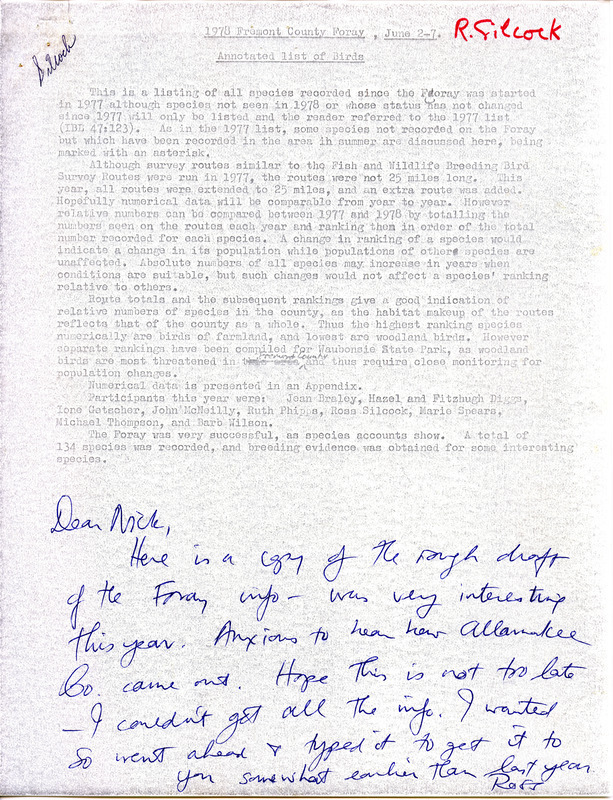 1978 Fremont County Foray , June 2-7.
R. Silcock
Silcock
Annotated list of Birds
This is a listing of all species recorded since the Fooray was started
in 1977 although species not seen in 1978 or whose status has not changed
since 1977 will only be listed and the reader referred to the 1977 list
(IBL 47:123). As in the 1977 list, some species not recorded on the Foray
but which have been recorded in the area ih summer are discussed here, being
marked with an asterisk.
Although survey routes similar to the Fish and Wildlife Breeding Bird
Survey Routes were run in 1977, the routes were not 25 miles long. This
year, all routes were extended to 25 miles, and an extra route was added.
Hopefully numerical data will be comparable from year to year. However
relative numbers can be compared between 1977 and 1978 by totalling the
numbers seen on the routes each year and ranking then in order of the total
number recorded for each species. A change in ranking of a species would
indicate a change in its population while populations of other species are
unaffected. Absolute numbers of all species may increase in years when
conditions are suitable, but such changes would not affect a species' ranking
relative to others.
Route totals and the subsequent rankings give a good indication of
relative numbers of species in the county, as the habitat makeup of the routes
reflects that of the county as a whole. Thus the highest ranking species
numerically are birds of farmland, and lowest are woodland birds. However
separate rankings have been compiled for Waubonsie State Park, as woodland
birds are most threatened in Fremont County and thus require close monitoring for
population changes.
Numerical data is presented in an Appendix.
Participants this year were: Jean Braley, Hazel and Fitzhugh Diggs,
Ione Getscher, John McNeilly, Ruth Phipps, Ross Silcock, Marie Spears,
Michael Thompson, and Barb Wilson.
The Foray was very successful, as species accounts show. A total of
134 species was recorded, and breeding evidence was obtained for some interesting
species.
Dear Nick,
Here is a copy of the rough draft
of the Foray info - was very interesting
this year. Anxious to hear how Allamakee
Co. came out. Hope this is not too late
- I couldn't get all the info. I wanted
so went ahead & typed it to get it to
you somewhat earlier than last year.
Ross